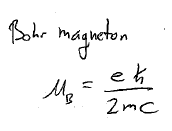 Bohr magneton
μ_B = eħ / 2mc